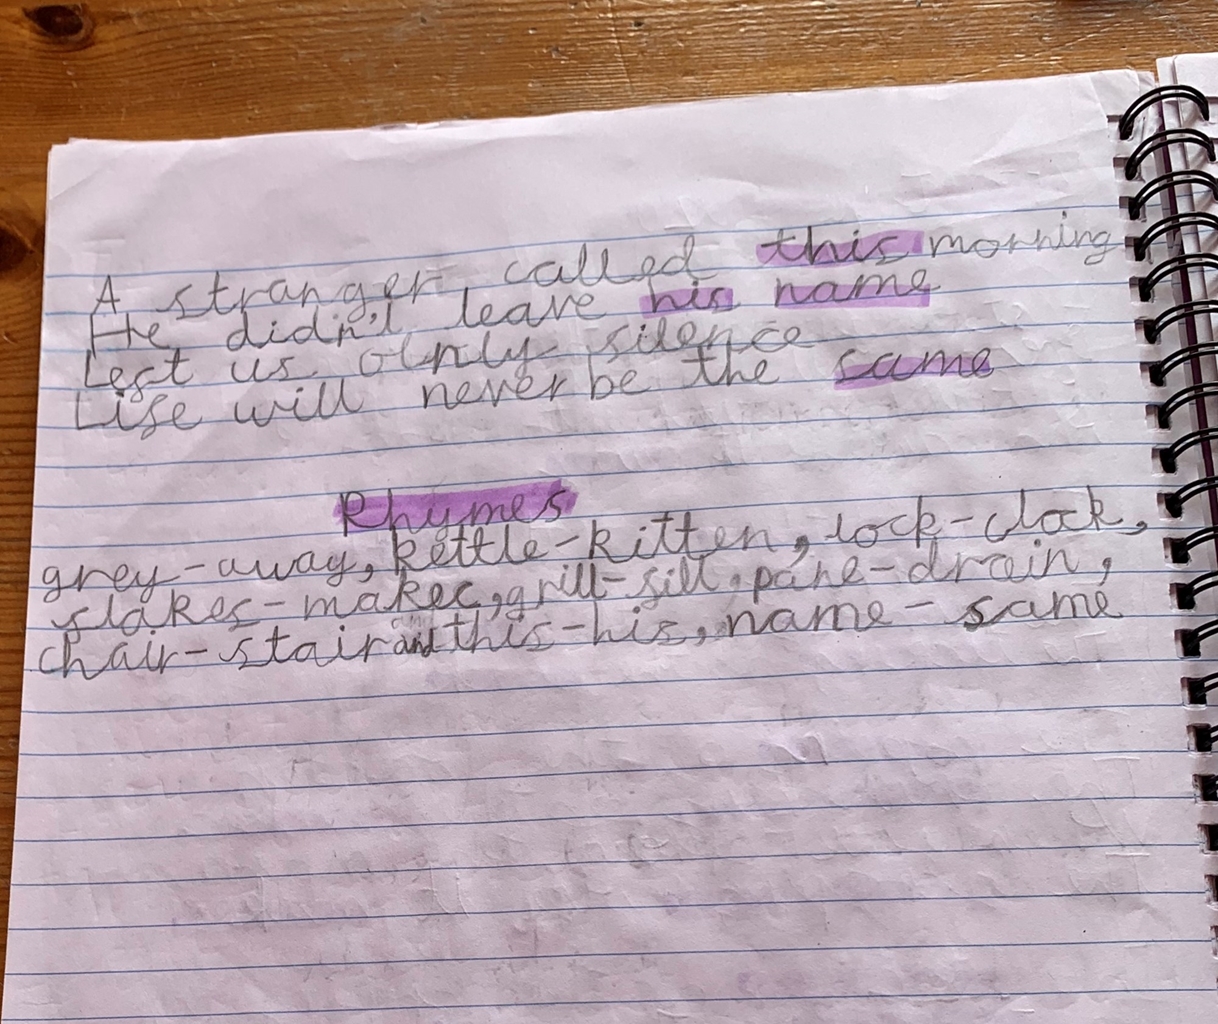 A stranger called this morning
He didn't leave his name
Left us only silence
Life will never be the same
Rhymes
grey-away, kettle-kitten, lock-clock,
slakes-makes, grill-sill, pane-drain,
chair-stair and this-his, name-same